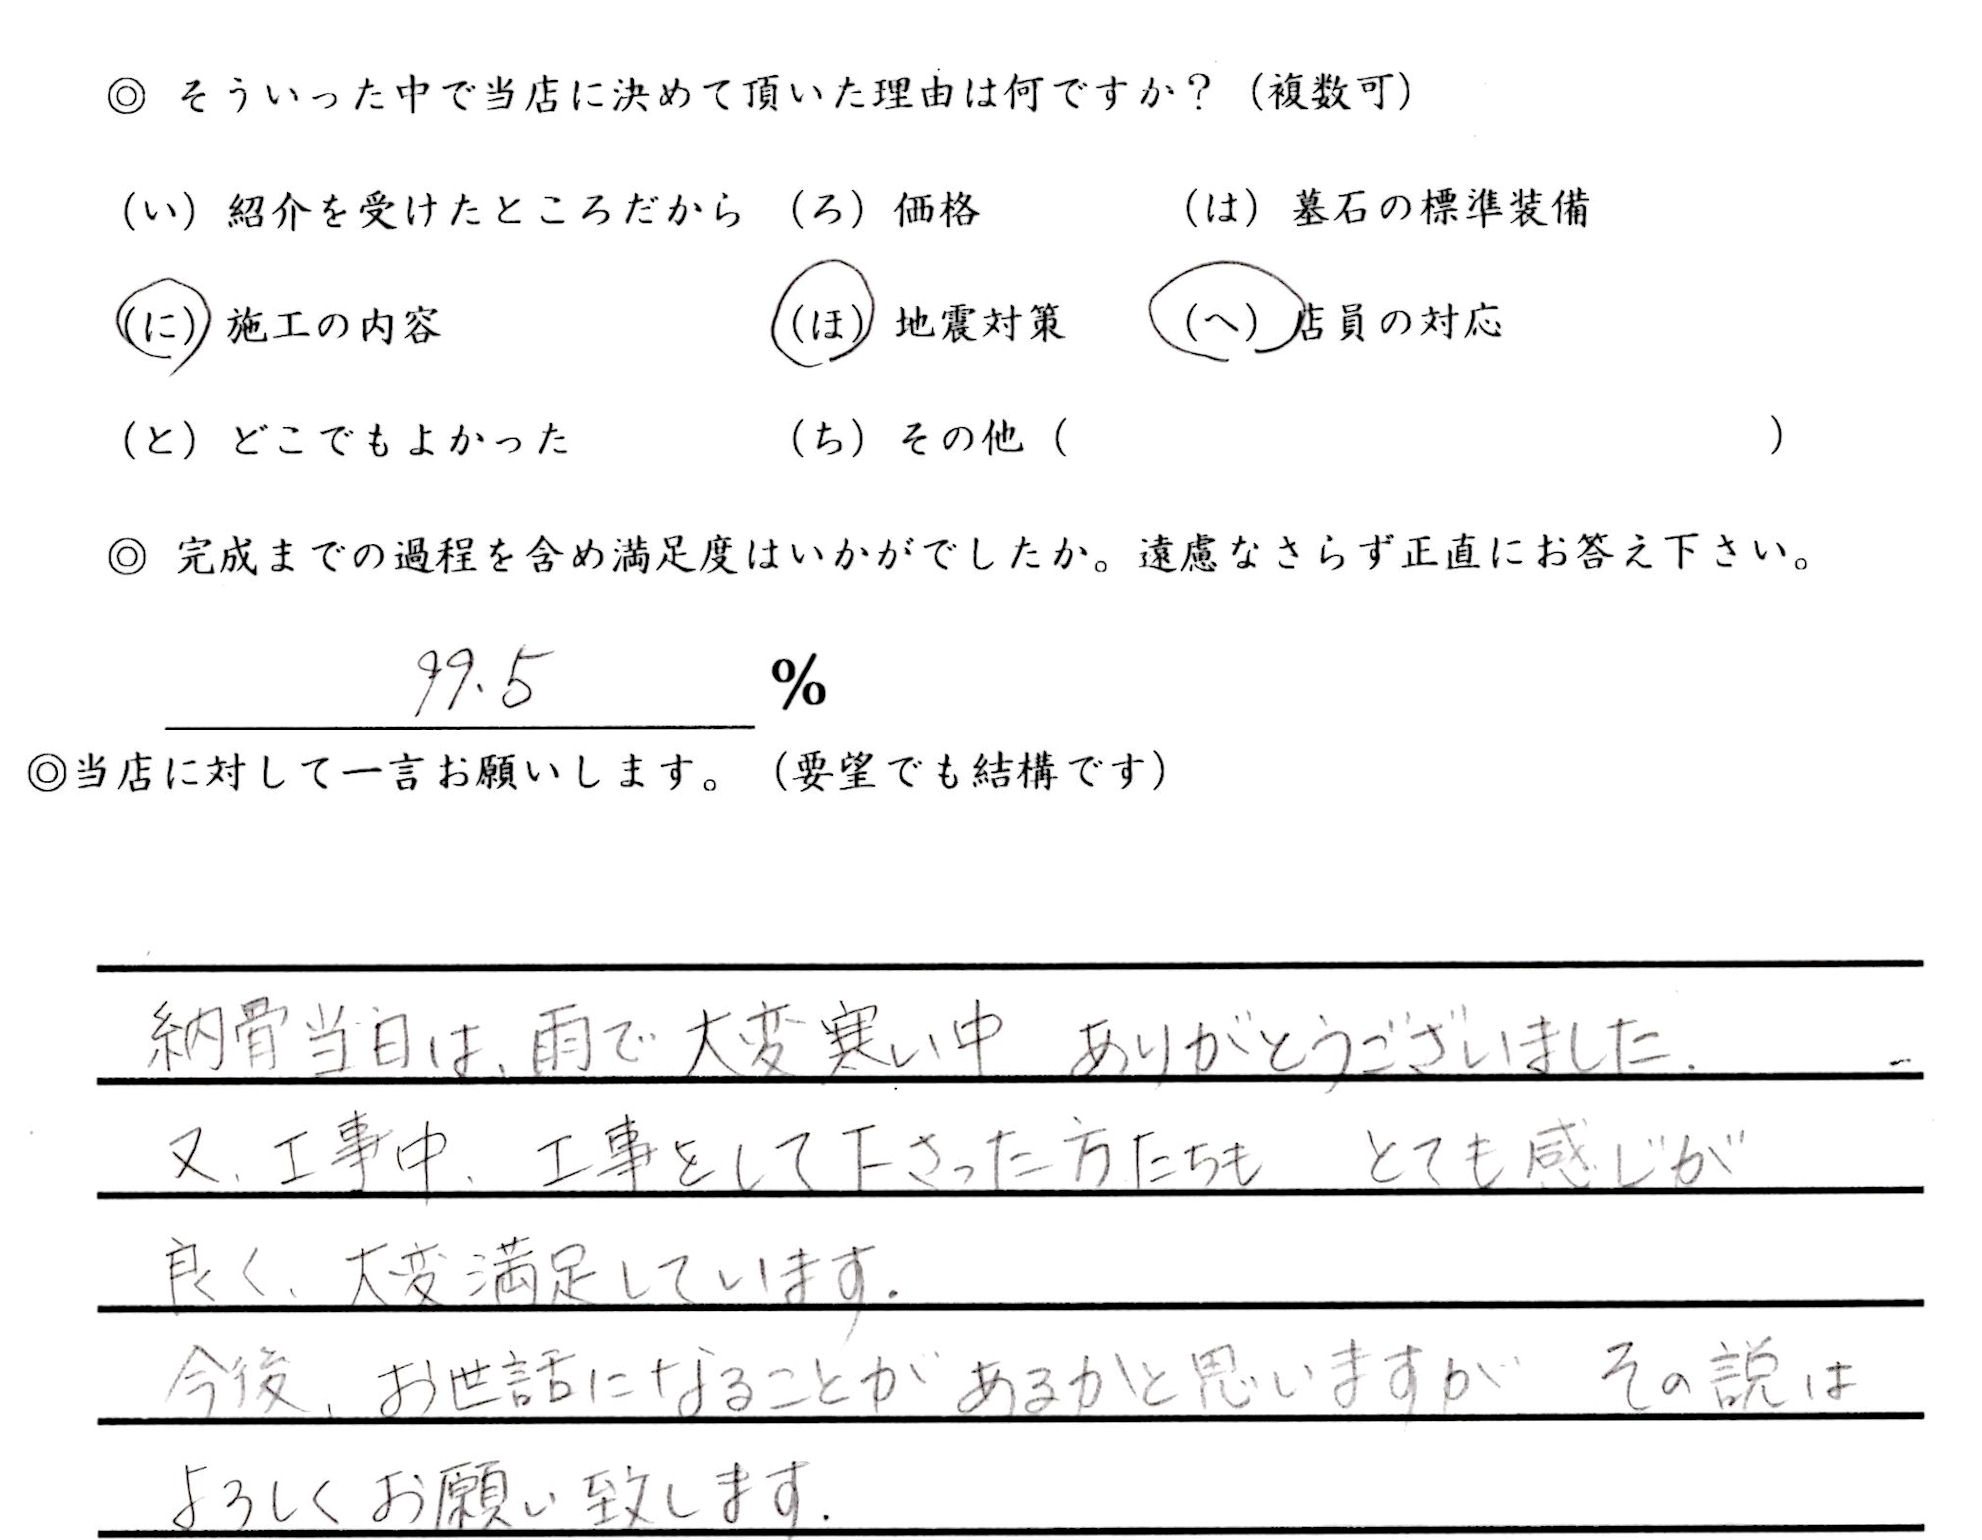 ◎ そういった中で当店に決めて頂いた理由は何ですか？（複数可）
（い）紹介を受けたところだから （ろ）価格 （は）墓石の標準装備
（に）施工の内容 （ほ）地震対策 （へ）店員の対応
（と）どこでもよかった （ち）その他（ ）
◎ 完成までの過程を含め満足度はいかがでしたか。遠慮なさらず正直にお答え下さい。
99.5 %
◎当店に対して一言お願いします。（要望でも結構です）
納骨当日は、雨で大変寒い中 ありがとうございました.
又、工事中、工事をして下さった方たちも とても感じが
良く、大変満足しています.
今後、お世話になることがあるかと思いますが その説は
よろしくお願い致します.